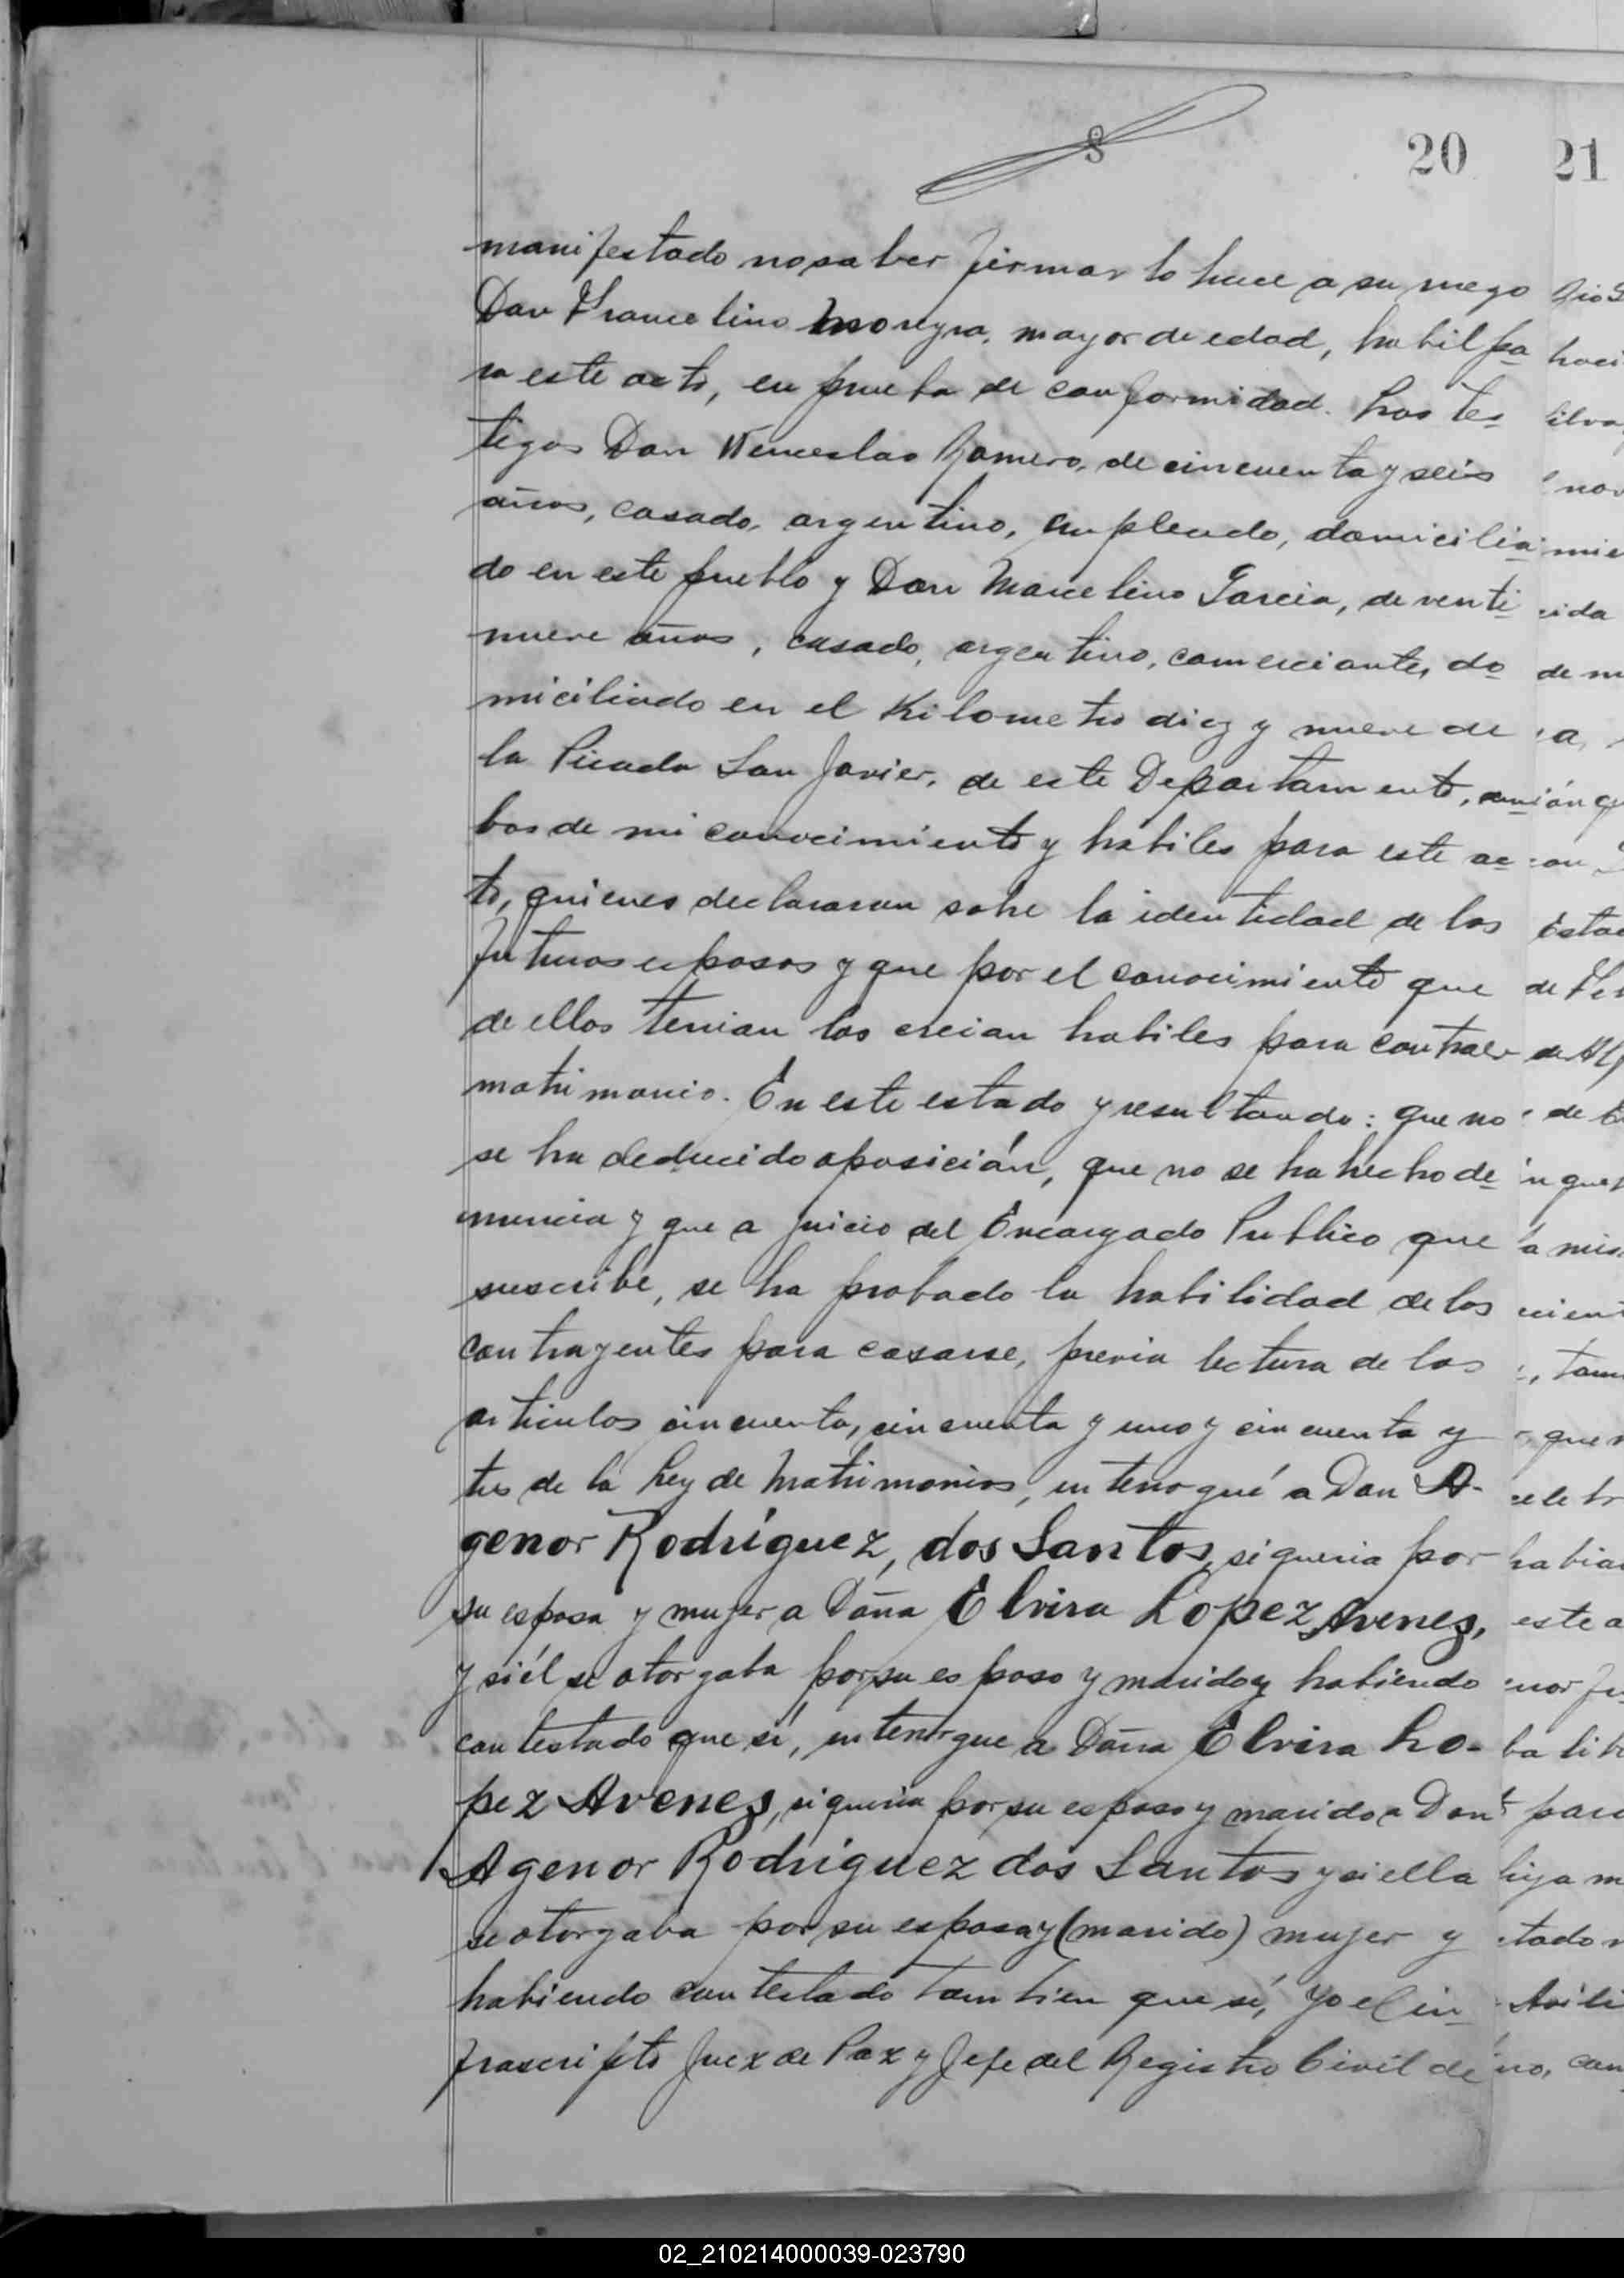 8
20
21
manifestado no saber firmar lo hace a su ruego
Don Francelino Moreyra, mayor de edad, habil pa
ra este acto, en prueba de conformidad. Los tes
tigos Don Wenceslao Romero, de cincuenta y seis
años, casado, argentino, empleado, domicilia
do en este pueblo y Don Marcelino Garcia, de venti
nueve años, casado, argentino, comerciante, do
miciliado en el Kilometro diez y nueve de
la Picada San Javier, de este Departamento, am
bos de mi conocimiento y habiles para este ac
to, quienes declararon sobre la identidad de los
futuros esposos y que por el conocimiento que
de ellos tenian los creian habiles para contraer
matrimonio. En este estado y resultando: que no
se ha deducido oposición, que no se ha hecho de
nuncia y que a juicio del Encargado Publico que
suscribe, se ha probado la habilidad de los
contrayentes para casarse, previa lectura de los
articulos cincuenta, cincuenta y uno y cincuenta y
tres de la Ley de Matrimonios, interrogué a Don A-
genor Rodríguez, dos Santos, si queria por
su esposa y mujer a Doña Elvira Lopez Avenez,
y si él se otorgaba por su esposo y marido y habiendo
contestado que sí, interrogue a Doña Elvira Lo-
pez Avenez, si queria por su esposo y marido a Don
Agenor Rodríguez dos Santos y si ella
se otorgaba por su esposa y (marido) mujer y
habiendo contestado tambien que sí, Yo el in
frascripto Juez de Paz y Jefe del Registro Civil de
02_210214000039-023790